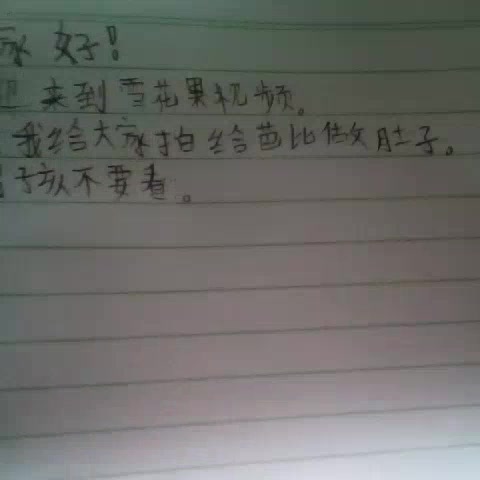 家好!
迎来到雪花果视频。
我给大家拍给芭比做肚子。
子孩不要看。